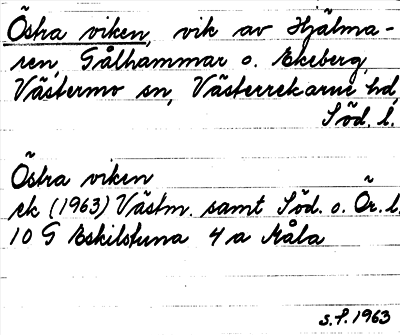 Östra viken, vik av Hjälma-
ren, Gålhammar o. Ekeberg,
Västermo sn, Västerrekarne hd,
Söd. l.
Östra viken
ek (1963) Västm. samt Söd. o. Ör. l.
10 G Eskilstuna 4 a Måla
S.F. 1963